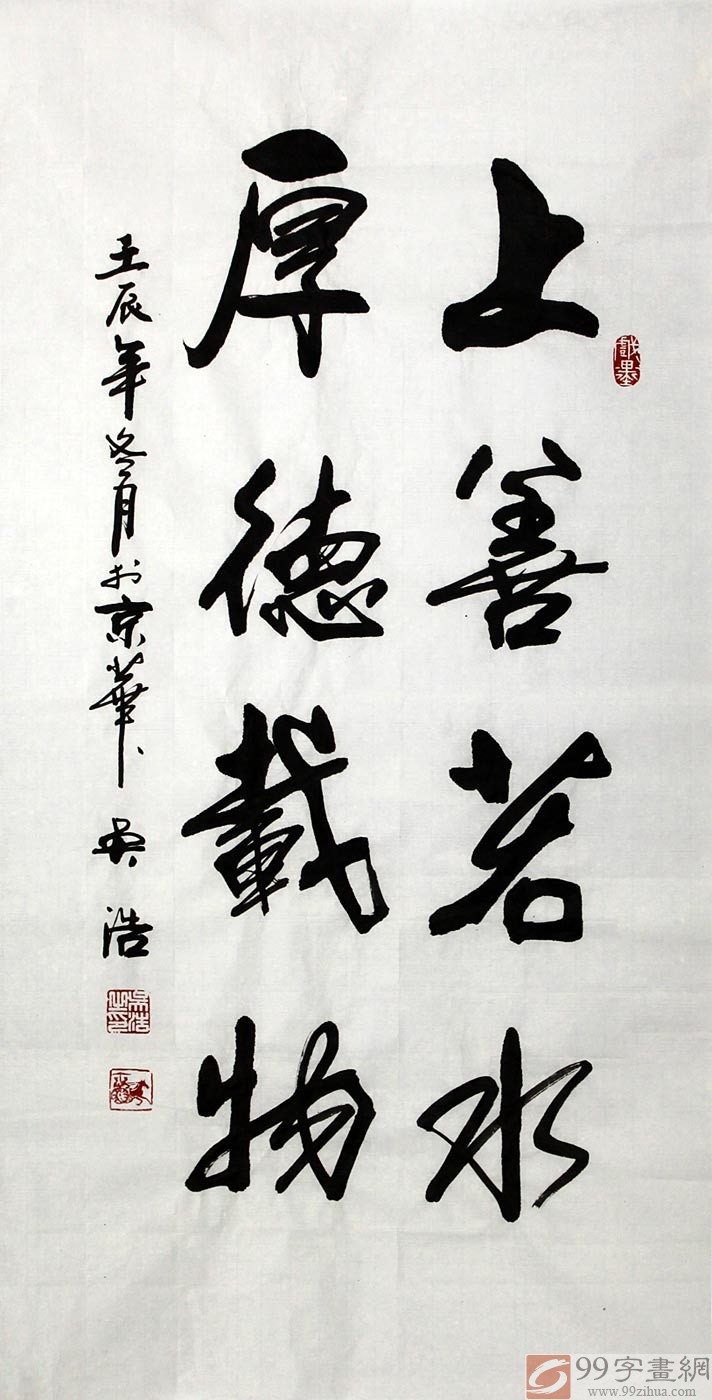 上善若水
厚德載物
壬辰年冬月於京華、吴浩
戲墨
吴浩之印
99字畫網
www.99zihua.com